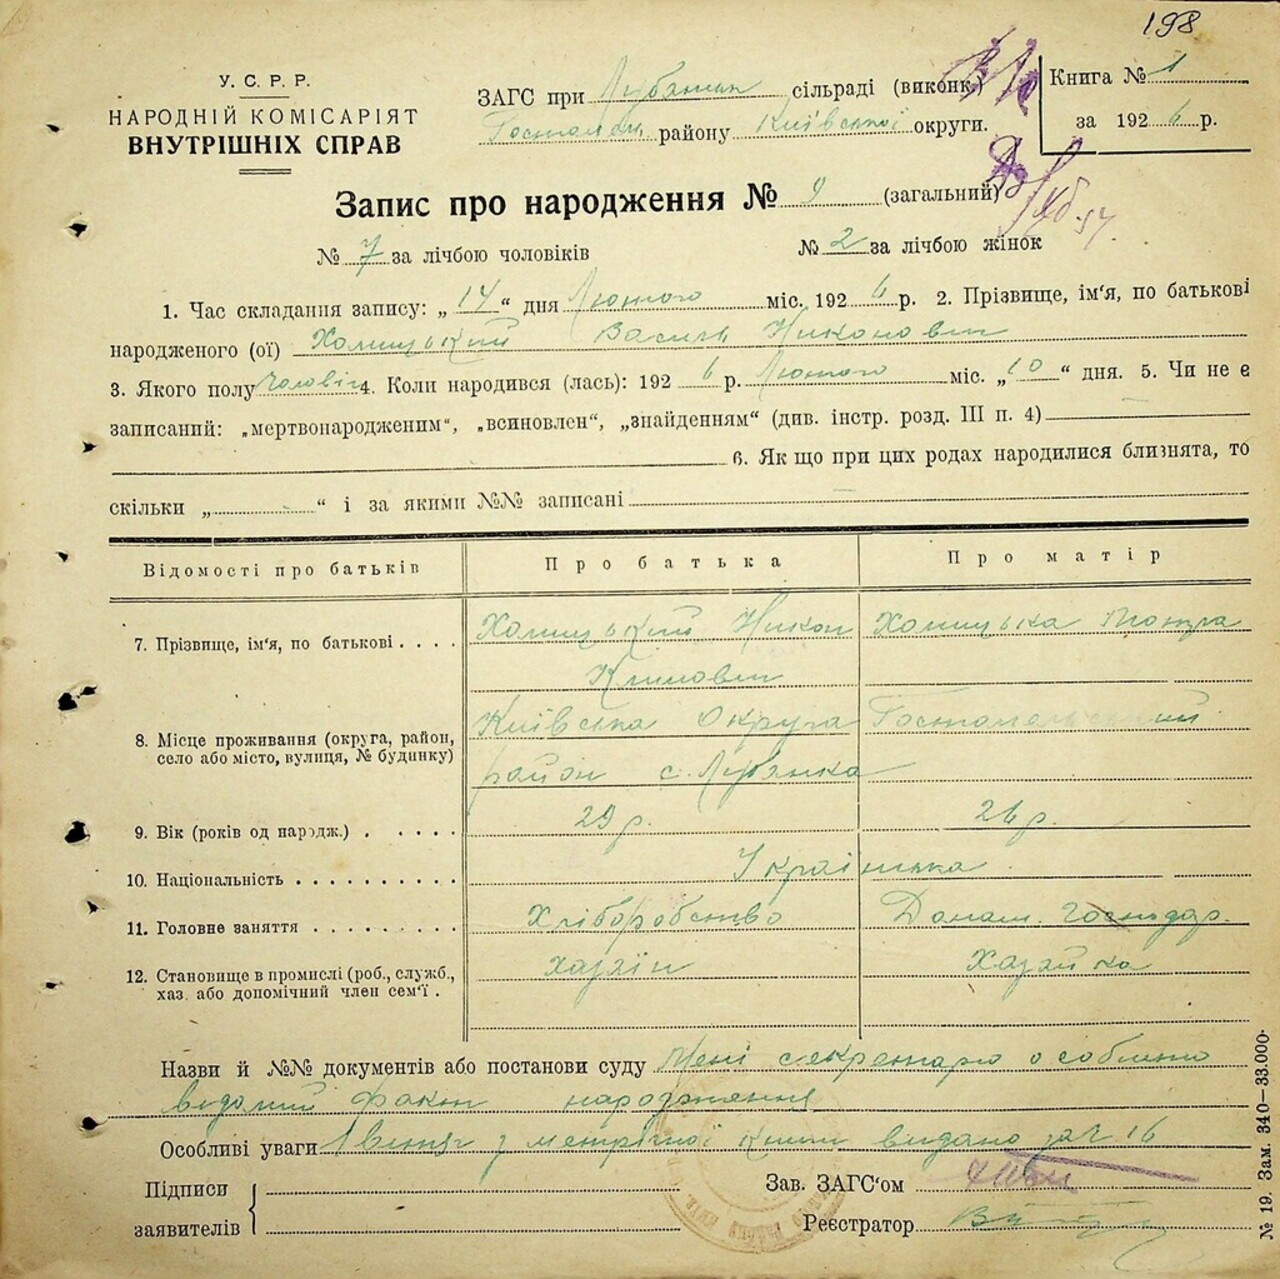 198
У. С. Р. Р.
НАРОДНІЙ КОМІСАРІЯТ
ВНУТРІШНІХ СПРАВ
ЗАГС при Лубянськ сільраді (виконк.)
Гостомльськ району Київської округи.
Книга № 1
за 1926 р.
Запис про народження № 9 (загальний)
№ 7 за лічбою чоловіків № 2 за лічбою жінок
1. Час складання запису: „14“ дня Лютого міс. 1926 р. 2. Прізвище, ім'я, по батькові
народженого (ої) Василь Никонович
3. Якого полу 4. Коли народився (лась): 1926 р. Лютого міс. „10“ дня. 5. Чи не є
записаний: „мертвонародженим“, „всиновлен“, „знайденям“ (див. інстр. розд. III п. 4)
6. Як що при цих родах народилися близнята, то
скільки „ “ і за якими №№ записані
Відомості про батьків Про батька Про матір
7. Прізвище, ім'я, по батькові . . . . Никон
Климович
8. Місце проживання (округа, район, Київська Округа Гостомельський
село або місто, вулиця, № будинку) район с. Лубянка
9. Вік (років од народж.) . . . . . 29 р. 26 р.
10. Національність . . . . . . . . . . Українська
11. Головне заняття . . . . . . . . . Хліборобство Домаш. Господар.
12. Становище в промислі (роб., служб., хазяїн Хазяйка
хаз. або допомічний член сем'ї .
Назви й №№ документів або постанови суду Мені секретарю особисто
відомий факт народження
Особливі уваги витяг з метричної книги видано за № 16
Підписи Зав. ЗАГС'ом
заявителів Реєстратор
№ 19. Зам. 340–33.000